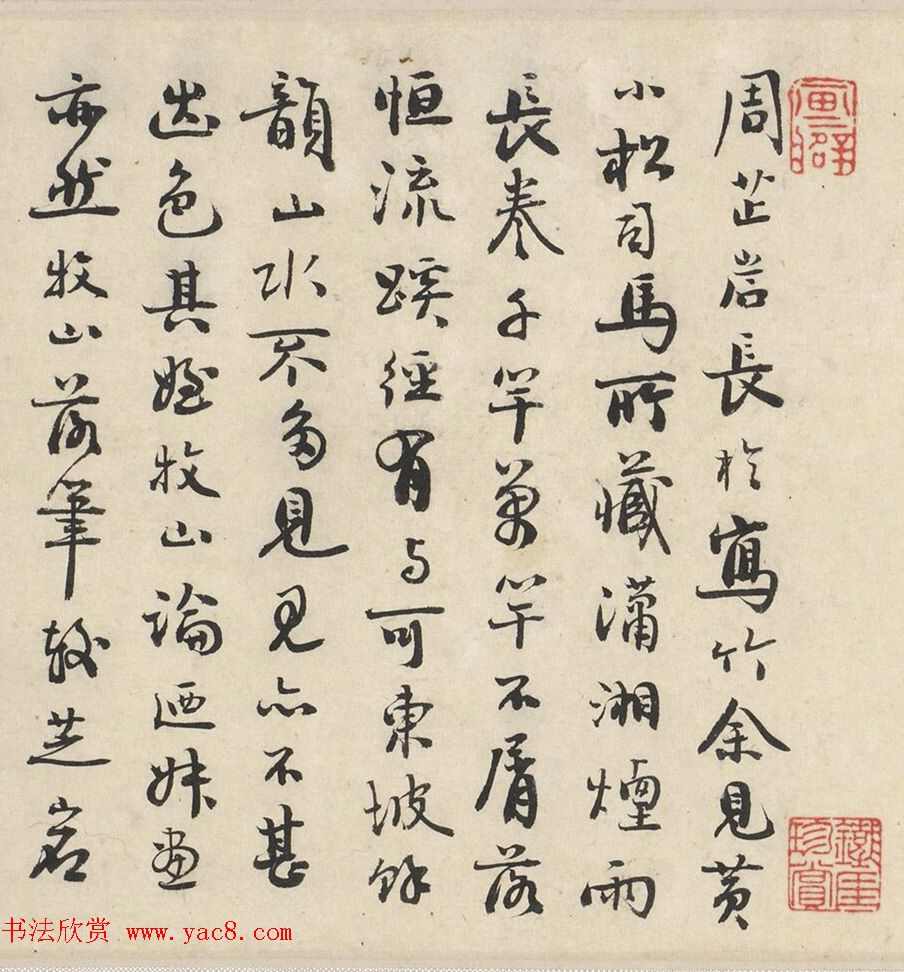 周芷岩長於寫竹余見黃
小松司馬所藏瀟湘煙雨
長卷千竿萬竿不屑落
恒流蹊徑有与可東坡餘
韻山水不多見見亦不甚
出色其姪牧山論迺叔畫
亦然牧山落筆較芝岩
珍賞
书法欣赏 www.yac8.com